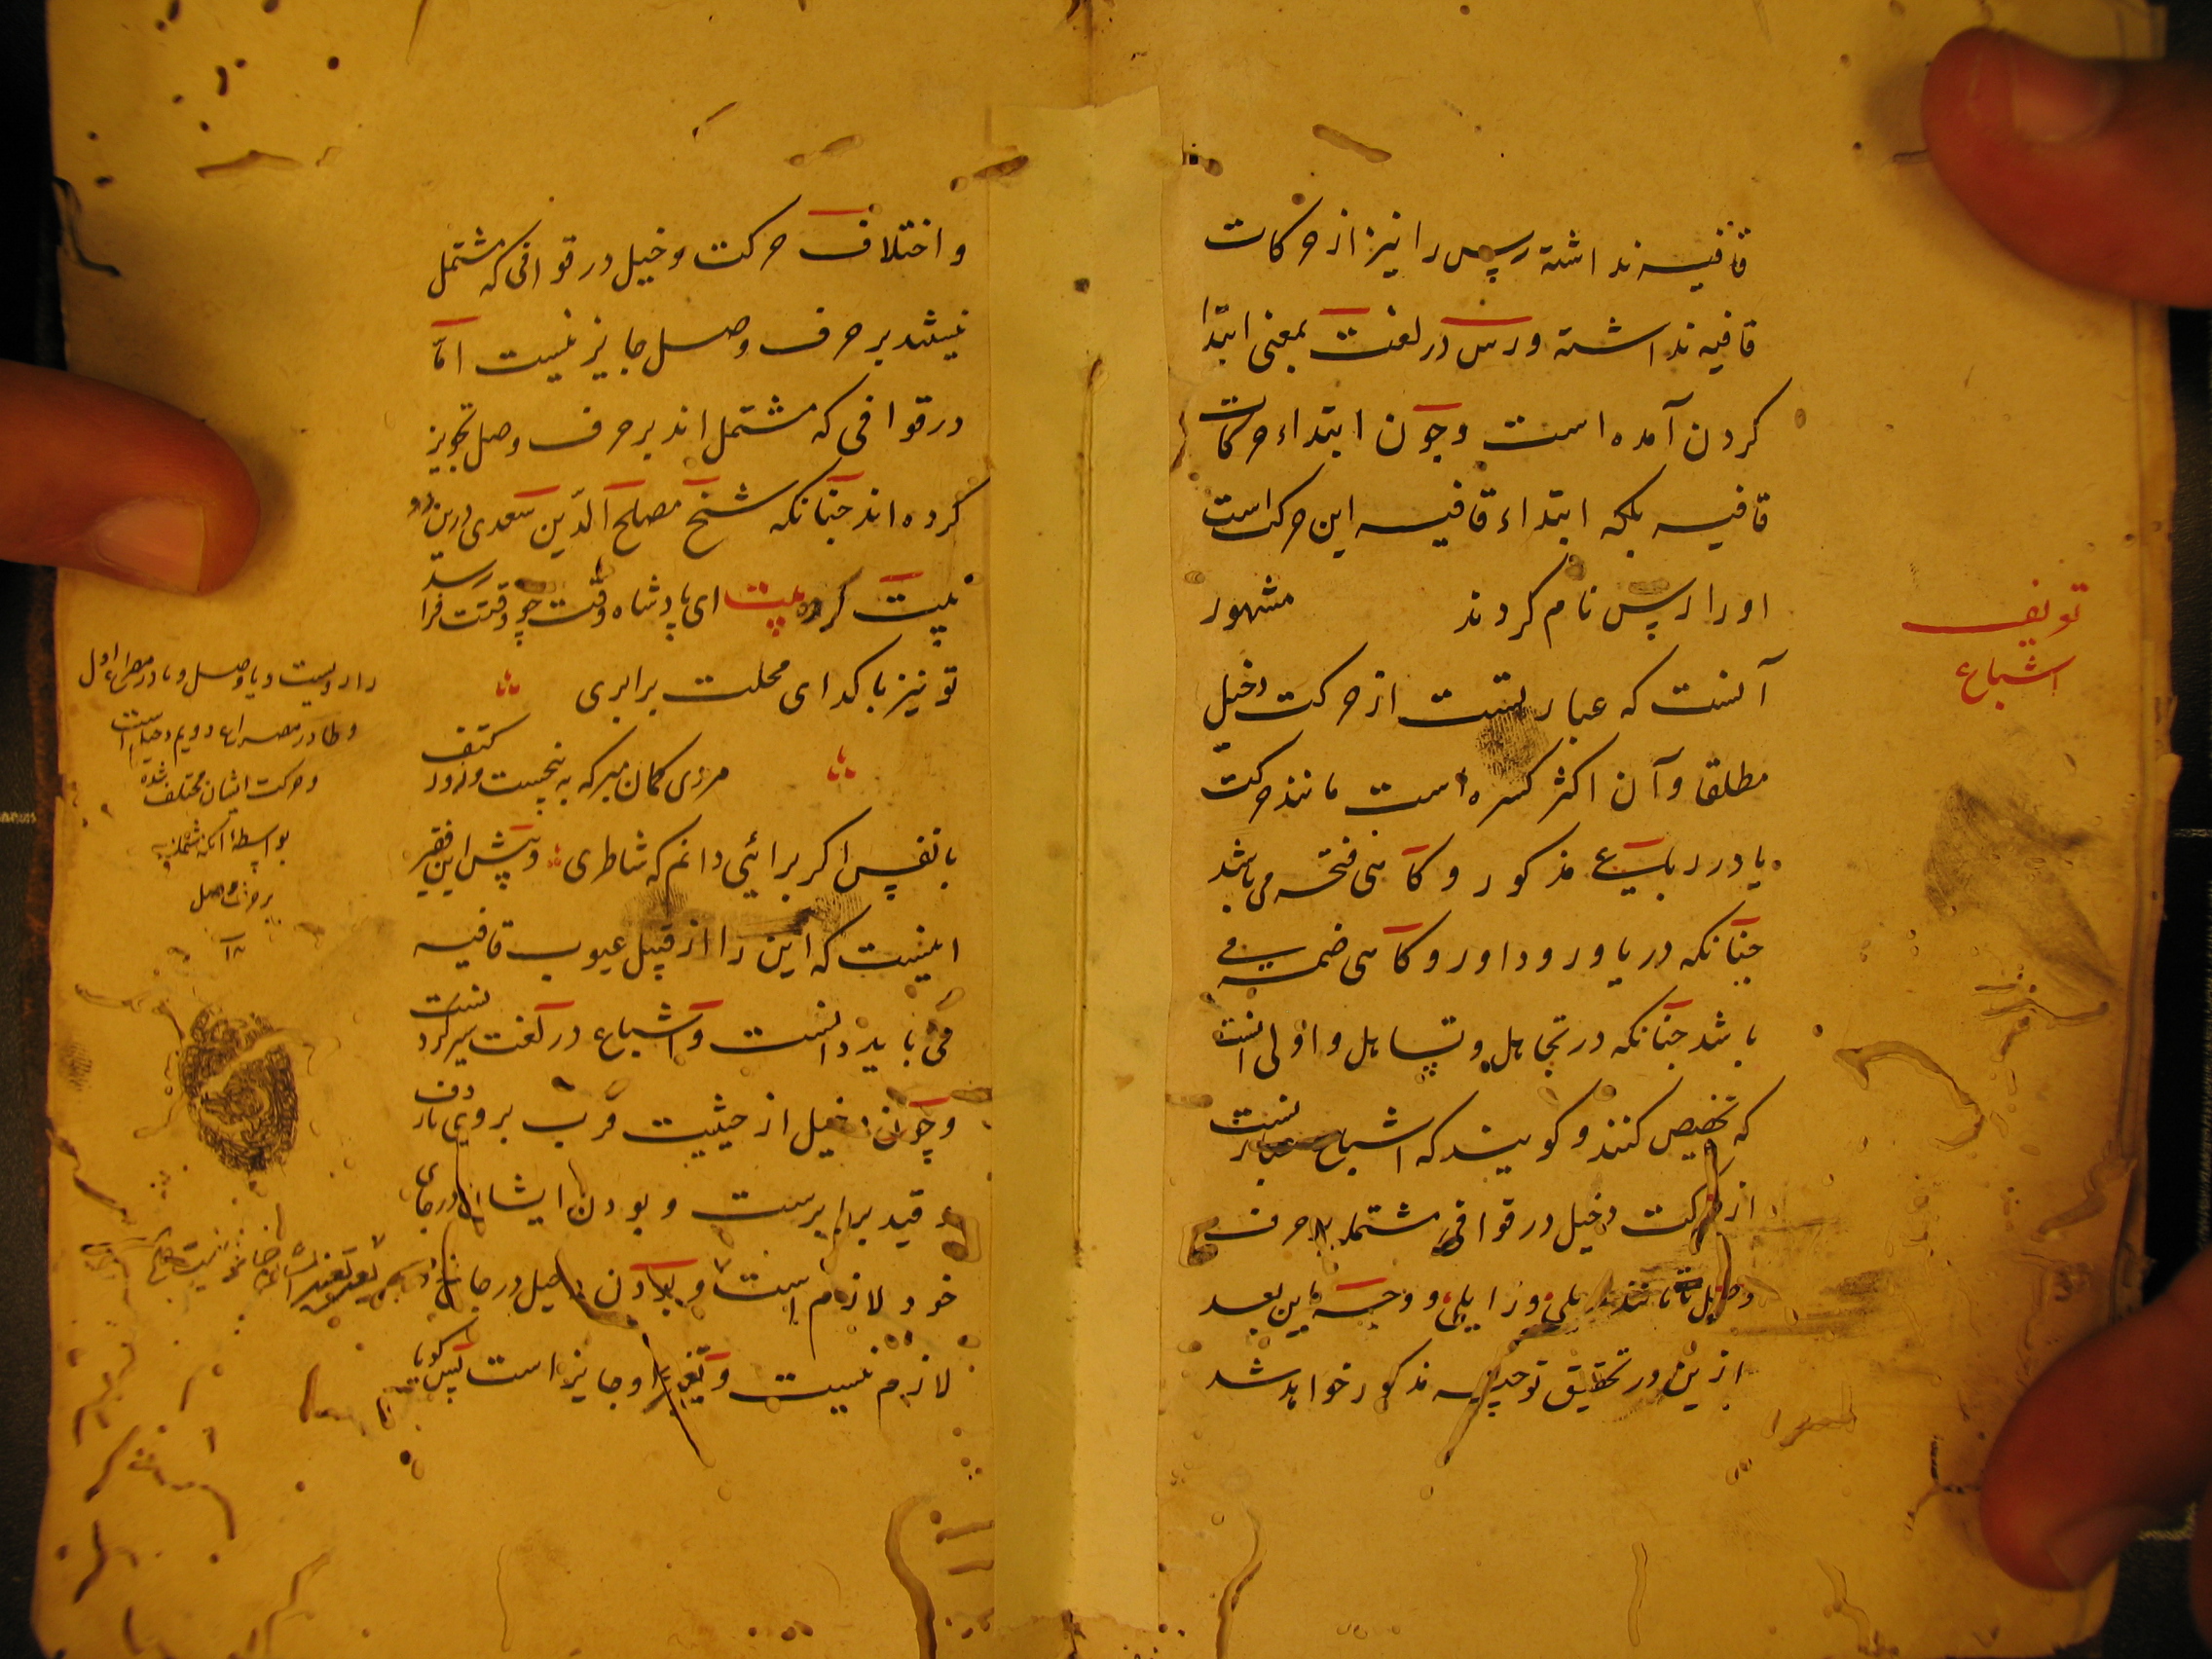 قافیه نداشته رس را نیز از حرکات
قافیه نداشته و رس در لغت بمعنی ابتدا
کردن آمده است و چون ابتداء حرکات
قافیه بلکه ابتداء قافیه این حرکت است
او را رس نام کردند مشهور
آنست که عبارتست از حرکت دخیل
مطلقا و آن اکثر کسره است مانند حرکت
مذکور و کاهی فتحه می باشد
چنانکه در یاور و داور و کاهی ضمه می
باشد چنانکه در تجاهل و تساهل و اولی آنست
که تخصیص کنند و کویند که اشباع عبارتست
از حرکت دخیل در قوافی مشتمله بر حرف
وصل مانند و زایلی و وجه این بعد
ازین در تحقیق توجیه مذکور خواهد شد
تعریف
اشباع
و اختلاف حرکت دخیل در قوافی که مشتمل
نیستند بر حرف وصل جایز نیست امّا
در قوافی که مشتمل اند بر حرف وصل تجویز
کرده اند چنانکه شیخ مصلح الدّین سعدی درین دو
بیت کرده بیت ای پادشاه وقت چو وقتت فرا رسد
تو نیز با کدای محلت برابری
مردی کمان مبر که به پنجست و زور کتف
با نفس اکر برائی دانم که شاطری و پیش این فقیر
اینست که این را از قبیل عیوب قافیه
می باید دانست و اشباع در لغت سیر کردنست
و چون دخیل از حیثیت قرب بروی با ردف
و قید برابرست و بودن ایشان در جای
خود لازم است و بودن دخیل در جای خود
لازم نیست و تغییر او جایز است پس کویا
را رویست و یا وصل و با در مصراع اول
و طا در مصراع دویم دخیل است
و حرکت ایشان مختلف شده
بواسطه آنکه مشتملند
بر حرف وصل
۱۲